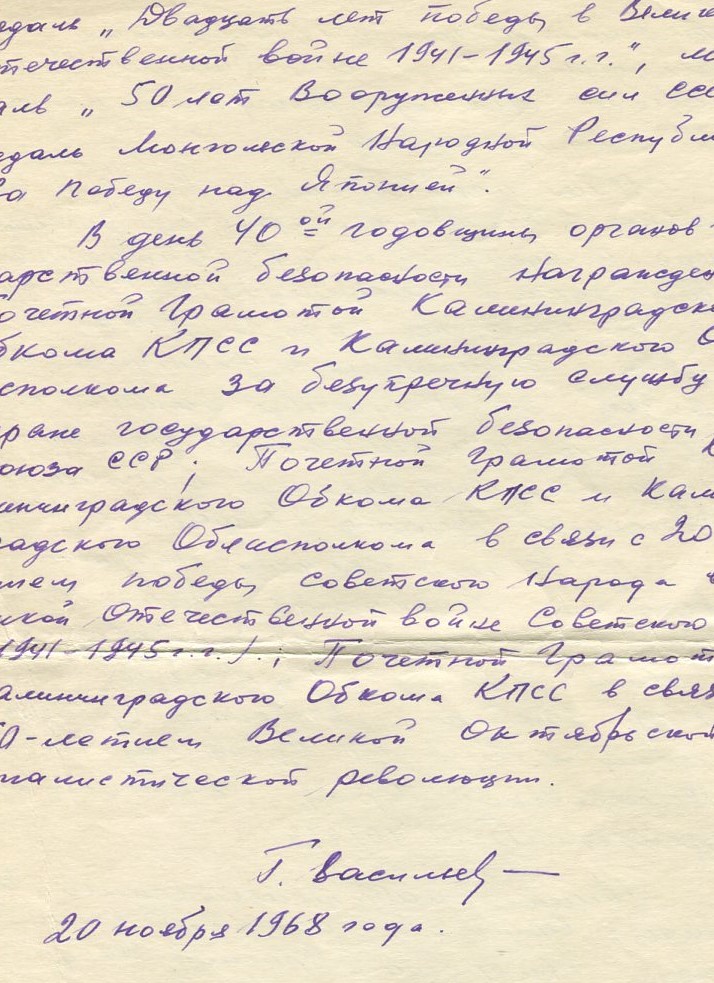 едаль „Двадцать лет победы в Вели
течественной войне 1941-1945 г.г.", м
аль „50 лет Вооруженных сил ССС
едаль Монгольской Народной Республ
За победу над Японией".
В день 40ой годовщины органов
дарственной безопасности награжден
очетной Грамотой Калининградско
бкома КПСС и Калининградского О
сполкома за безупречную службу
ране государственной безопасности
оюза ССР; Почетной грамотой К
ининградского Обкома КПСС и Кали
радского Облисполкома в связи с 20
ием победы советского народа в
икой Отечественной войне Советского
1941-1945 г.г.).; Почетной Грамот
алининградского Обкома КПСС в связ
50-летием Великой Октябрьской
иалистической революции.
Г. Васильев
20 ноября 1968 года.